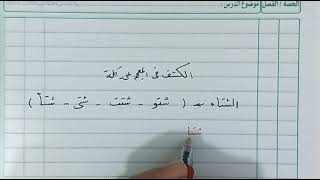 الحصة / الفصل موضوع الدرس :
الكشف في المعجم عن كلمة
الشتاء ← ( شتو - شتت - شتى - شتأ )
شتا